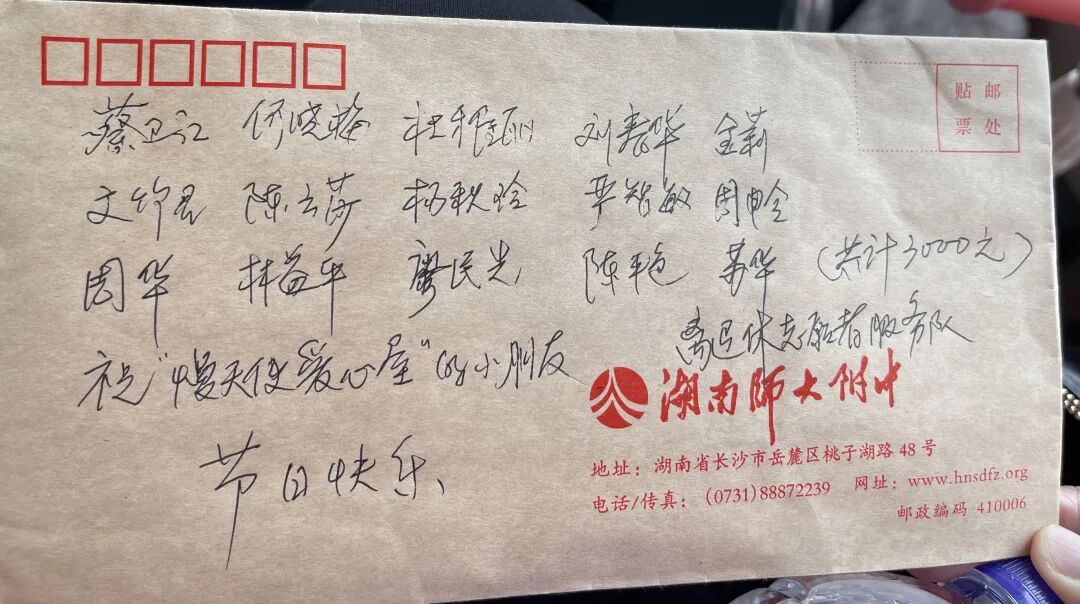 贴邮
票处
蔡卫红 何晓梅 杜雅丽 刘春华 金莉
文竹君 陈立莎 杨秋玲 严智敏 周申全
周华 林益平 廖民岂 陈艳 苏华 (共计3000元)
离退休志愿者服务队
祝"慢天使爱心屋"的小朋友
节日快乐
湖南师大附中
地址:湖南省长沙市岳麓区桃子湖路 48 号
电话/传真:(0731)88872239 网址:www.hnsdfz.org
邮政编码 410006